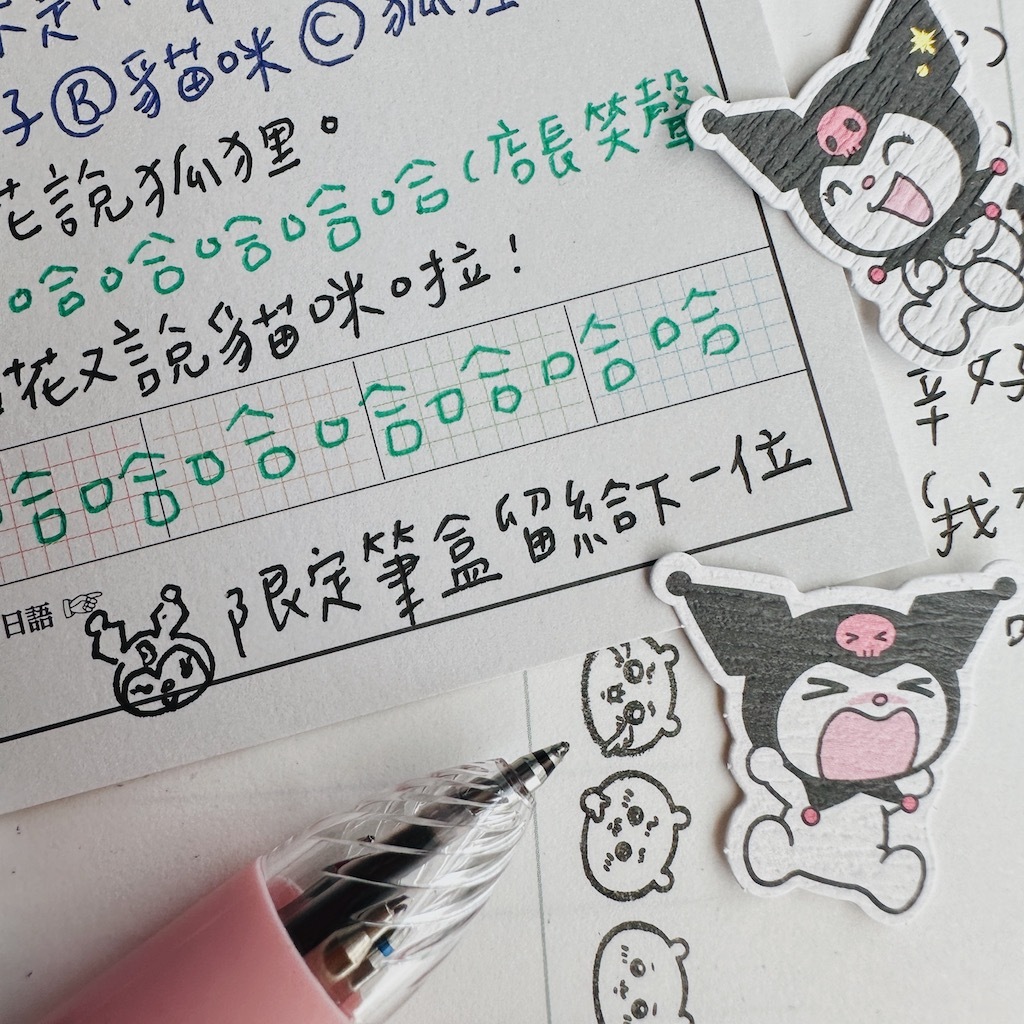 子Ⓑ貓咪Ⓒ狐狸
花說狐狸。
哈哈哈哈哈(店長笑聲
花又說貓咪啦!
哈哈哈哈哈哈哈
限定筆盒留給下一位
日語☞